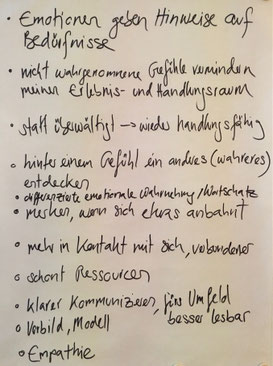 • Emotionen geben Hinweise auf
Bedürfnisse
• nicht wahrgenommene Gefühle vermindern
meinen Erlebnis- und Handlungsraum
• statt überwältigt → wieder handlungsfähig
• hinter einem Gefühl ein anderes (wahreres)
entdecken
• differenzierte emotionale Wahrnehmung / Wortschatz
• merken, wenn sich etwas anbahnt
• mehr in Kontakt mit sich, verbundener
• schont Ressourcen
• klarer Kommunizieren, fürs Umfeld
besser lesbar
• Vorbild, Modell
• Empathie